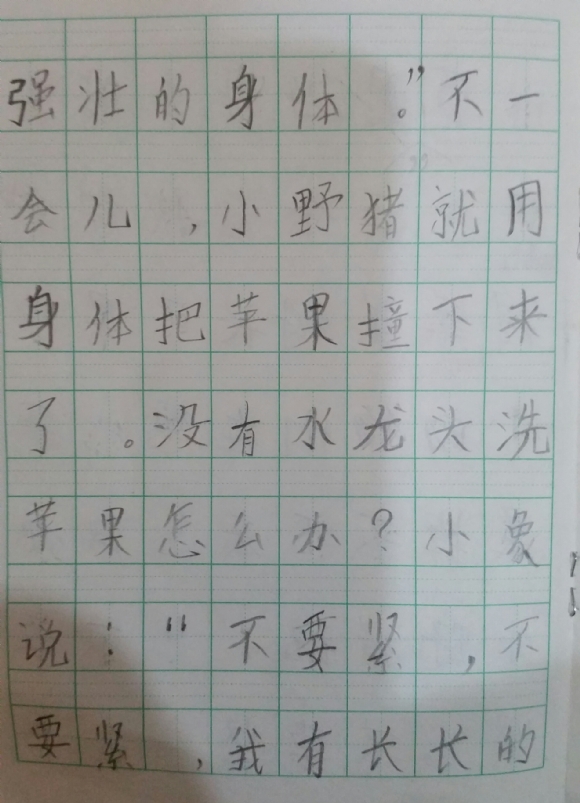 强壮的身体。”不一
会儿，小野猪就用
身体把苹果撞下来
了。没有水龙头洗
苹果怎么办？小象
说：“不要紧，不
要紧，我有长长的